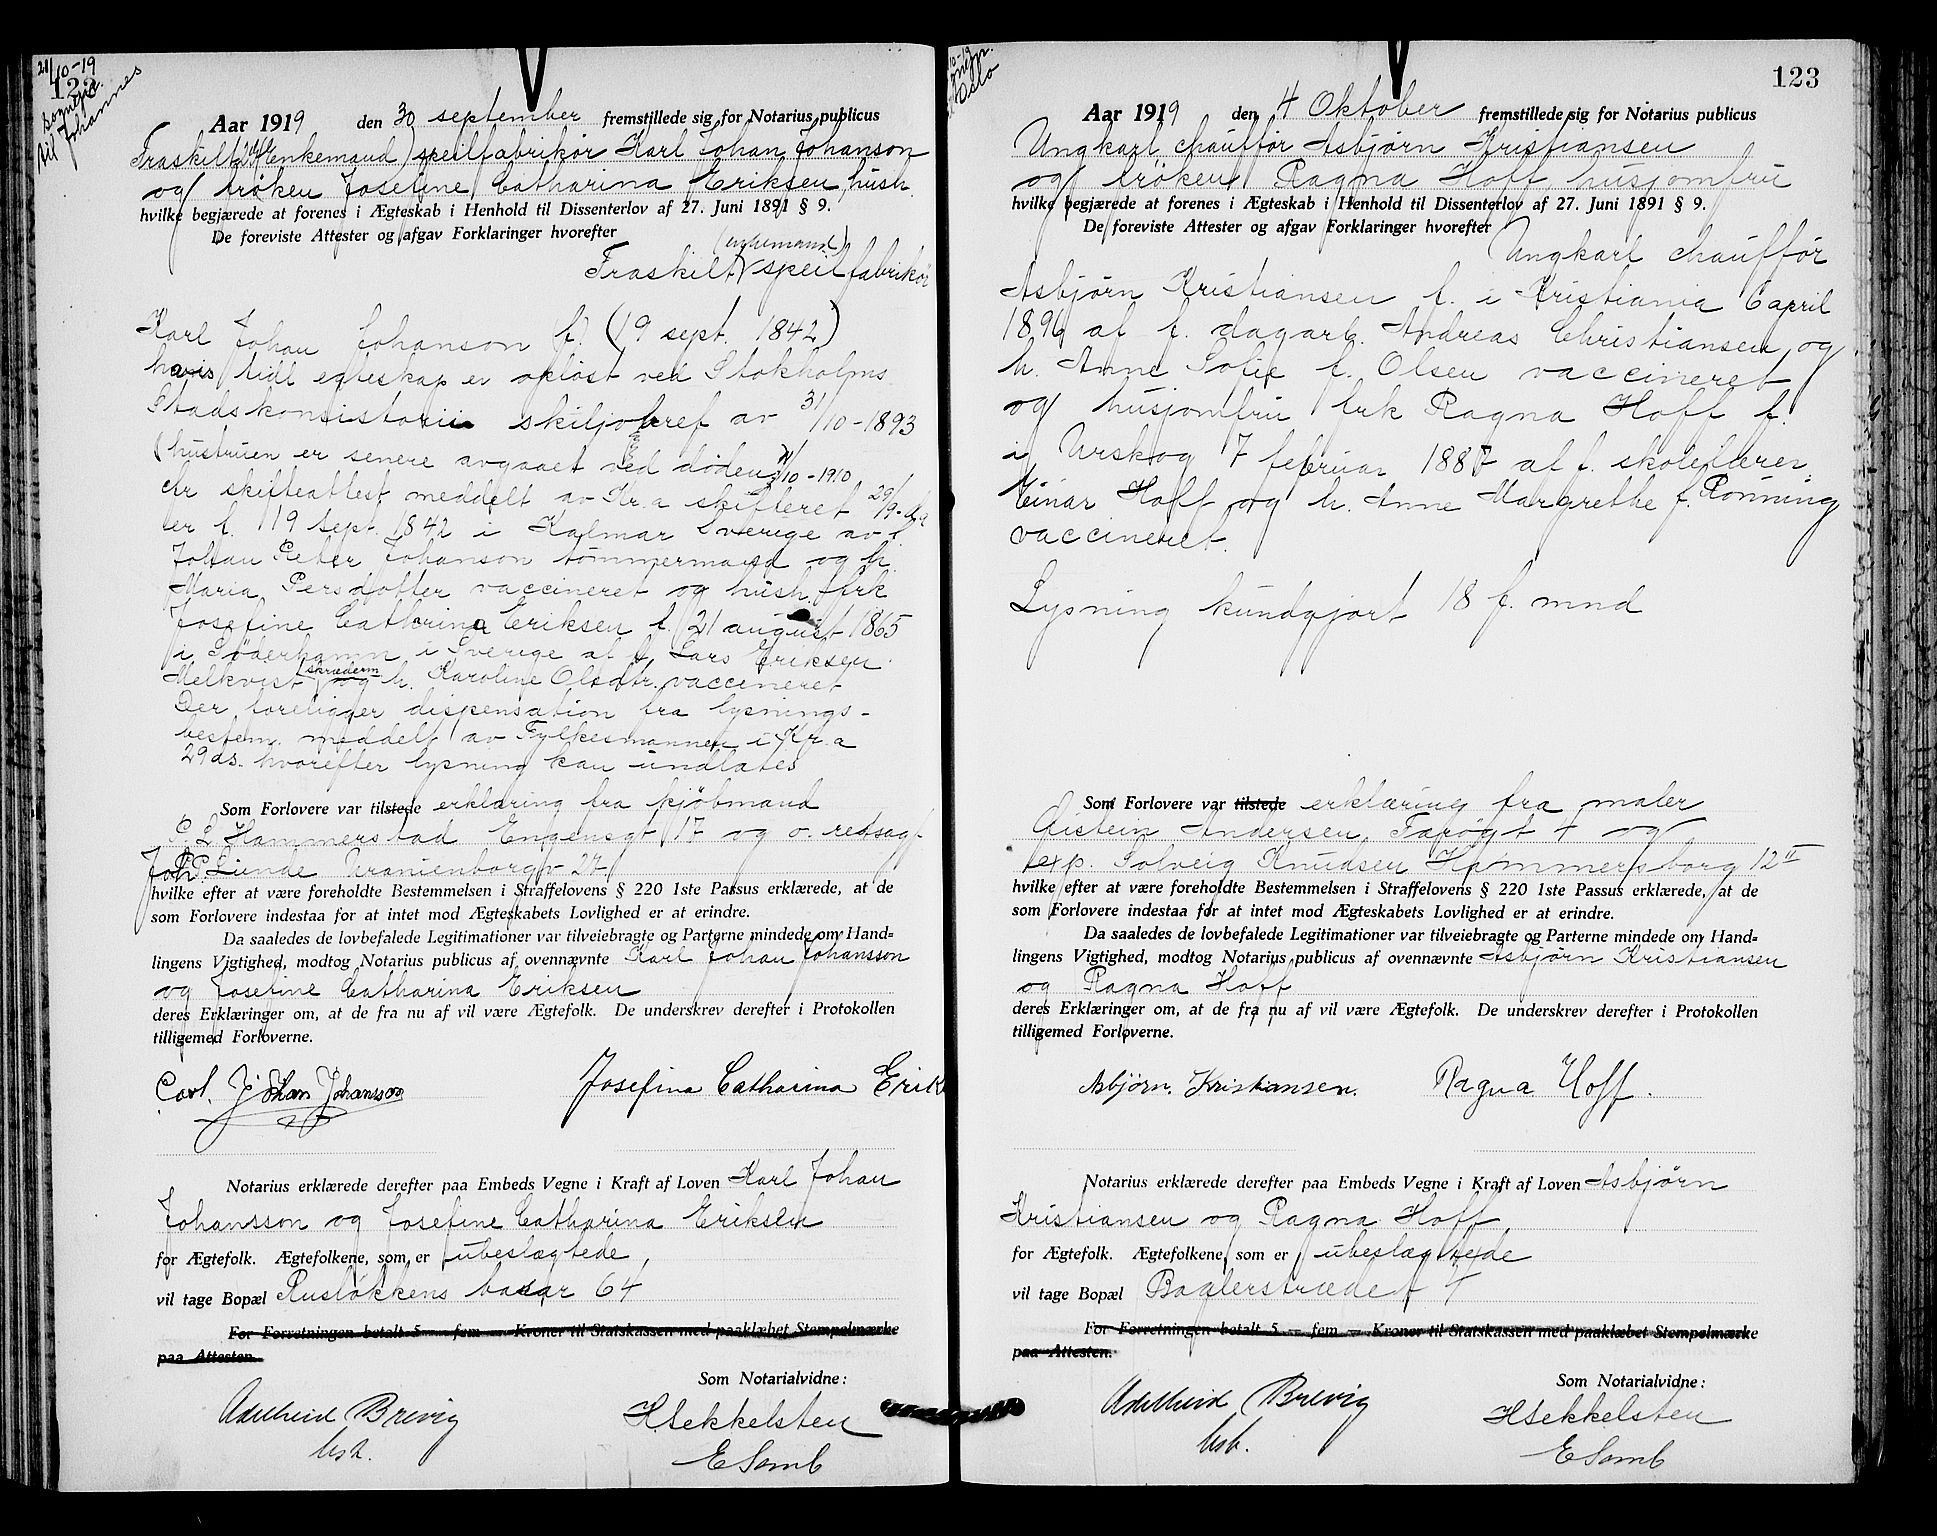 21/10-19
122
Sogneprs.
til Johannes
Aar 1919 den 30 september fremstillede sig for Notarius publicus
Fraskilt (enkemand) speilfabrikør Karl Johan Johanson
og frøken Josefine Catharina Eriksen hush.
hvilke begjærede at forenes i Ægteskab i Henhold til Dissenterlov af 27. Juni 1891 § 9.
De foreviste Attester og afgav Forklaringer hvorefter
(enkemand)
Fraskilt speilfabrikør
Karl Johan Johanson f. (19 sept. 1842)
hvis tidl egteskap er opløst ved Stokholms
Stadskonsistorii skiljobref av 31/10-1893
(hustruen er senere avgaaet ved døden /10-1910
efter skifteattest meddelt av Kr.a skifteret 29/9
er f. 19 sept. 1842 i Kalmar Sverige av f.
Johan Peter Johanson tømmermand og h.
Maria Persdotter vaccineret og hush. frk
Josefine Catharina Eriksen f. (21 august 1865
i Søderhamn i Sverige af f. Lars Eriksen
Melkvist skrædderm og h. Karoline Olsdtr. vaccineret
Der foreligger dispensation fra lysnings-
bestem. meddelt av Fylkesmannen i Kr.a
29 ds. hvorefter lysning kan undlates
Som Forlovere var tilstede erklæring fra kjøbmand
C. L Hammerstad Engensgt 17 og o. retssagf.
Joh P. Lunde Uranienborgv 27
hvilke efter at være foreholdte Bestemmelsen i Straffelovens § 220 1ste Passus erklærede, at de
som Forlovere indestaa for at intet mod Ægteskabets Lovlighed er at erindre.
Da saaledes de lovbefalede Legitimationer var tilveiebragte og Parterne mindede om Hand-
lingens Vigtighed, modtog Notarius publicus af ovennævnte Karl Johan Johansson
og Josefine Catharina Eriksen
deres Erklæringer om, at de fra nu af vil være Ægtefolk. De underskrev derefter i Protokollen
tilligemed Forloverne.
Carl. Johan Johansson Josefina Catharina Erik
Notarius erklærede derefter paa Embeds Vegne i Kraft af Loven Karl Johan
Johansson og Josefine Catharina Eriksen
for Ægtefolk. Ægtefolkene, som er ubeslægtede,
vil tage Bopæl Ruslökkens basar 64
For Forretningen betalt 5 — fem — Kroner til Statskassen med paaklæbet Stempelmærke
paa Attesten.
Som Notarialvidne:
Adelheid Brevig HSekkelsten
E Samb
123
Oslo
Aar 1919 den 4 Oktober fremstillede sig for Notarius publicus
Ungkarl, chauffør Asbjørn Kristiansen
og frøken Ragna Hoff, husjomfru
hvilke begjærede at forenes i Ægteskab i Henhold til Dissenterlov af 27. Juni 1891 § 9.
De foreviste Attester og afgav Forklaringer hvorefter
Ungkarl chauffør
Asbjørn Kristiansen f. i Kristiania 6 april
1896 af f. dagarb. Andreas Christiansen og
h. Anne Sofie f. Olsen vaccineret
og husjomfru frk Ragna Hoff f.
i Urskog 7 februar 1887 af f. skolelærer
Einar Hoff og h. Anne Margrethe f. Rønning
vaccineret.
Lysning kundgjort 18 f. mnd
Som Forlovere var tilstede erklæring fra maler
Øistein Andersen, Farøgt 4 og
exp. Solveig Knudsen Hammersborg 12 II
hvilke efter at være foreholdte Bestemmelsen i Straffelovens § 220 1ste Passus erklærede, at de
som Forlovere indestaa for at intet mod Ægteskabets Lovlighed er at erindre.
Da saaledes de lovbefalede Legitimationer var tilveiebragte og Parterne mindede om Hand-
lingens Vigtighed, modtog Notarius publicus af ovennævnte Asbjørn Kristiansen
og Ragna Hoff
deres Erklæringer om, at de fra nu af vil være Ægtefolk. De underskrev derefter i Protokollen
tilligemed Forloverne.
Asbjørn. Kristiansen. Ragna Hoff.
Notarius erklærede derefter paa Embeds Vegne i Kraft af Loven Asbjørn
Kristiansen og Ragna Hoff
for Ægtefolk. Ægtefolkene, som er ubeslægtede
vil tage Bopæl Baglerstrædet 4
For Forretningen betalt 5 — fem — Kroner til Statskassen med paaklæbet Stempelmærke
paa Attesten.
Som Notarialvidne:
Adelheid Brevig HSekkelsten
E Samb